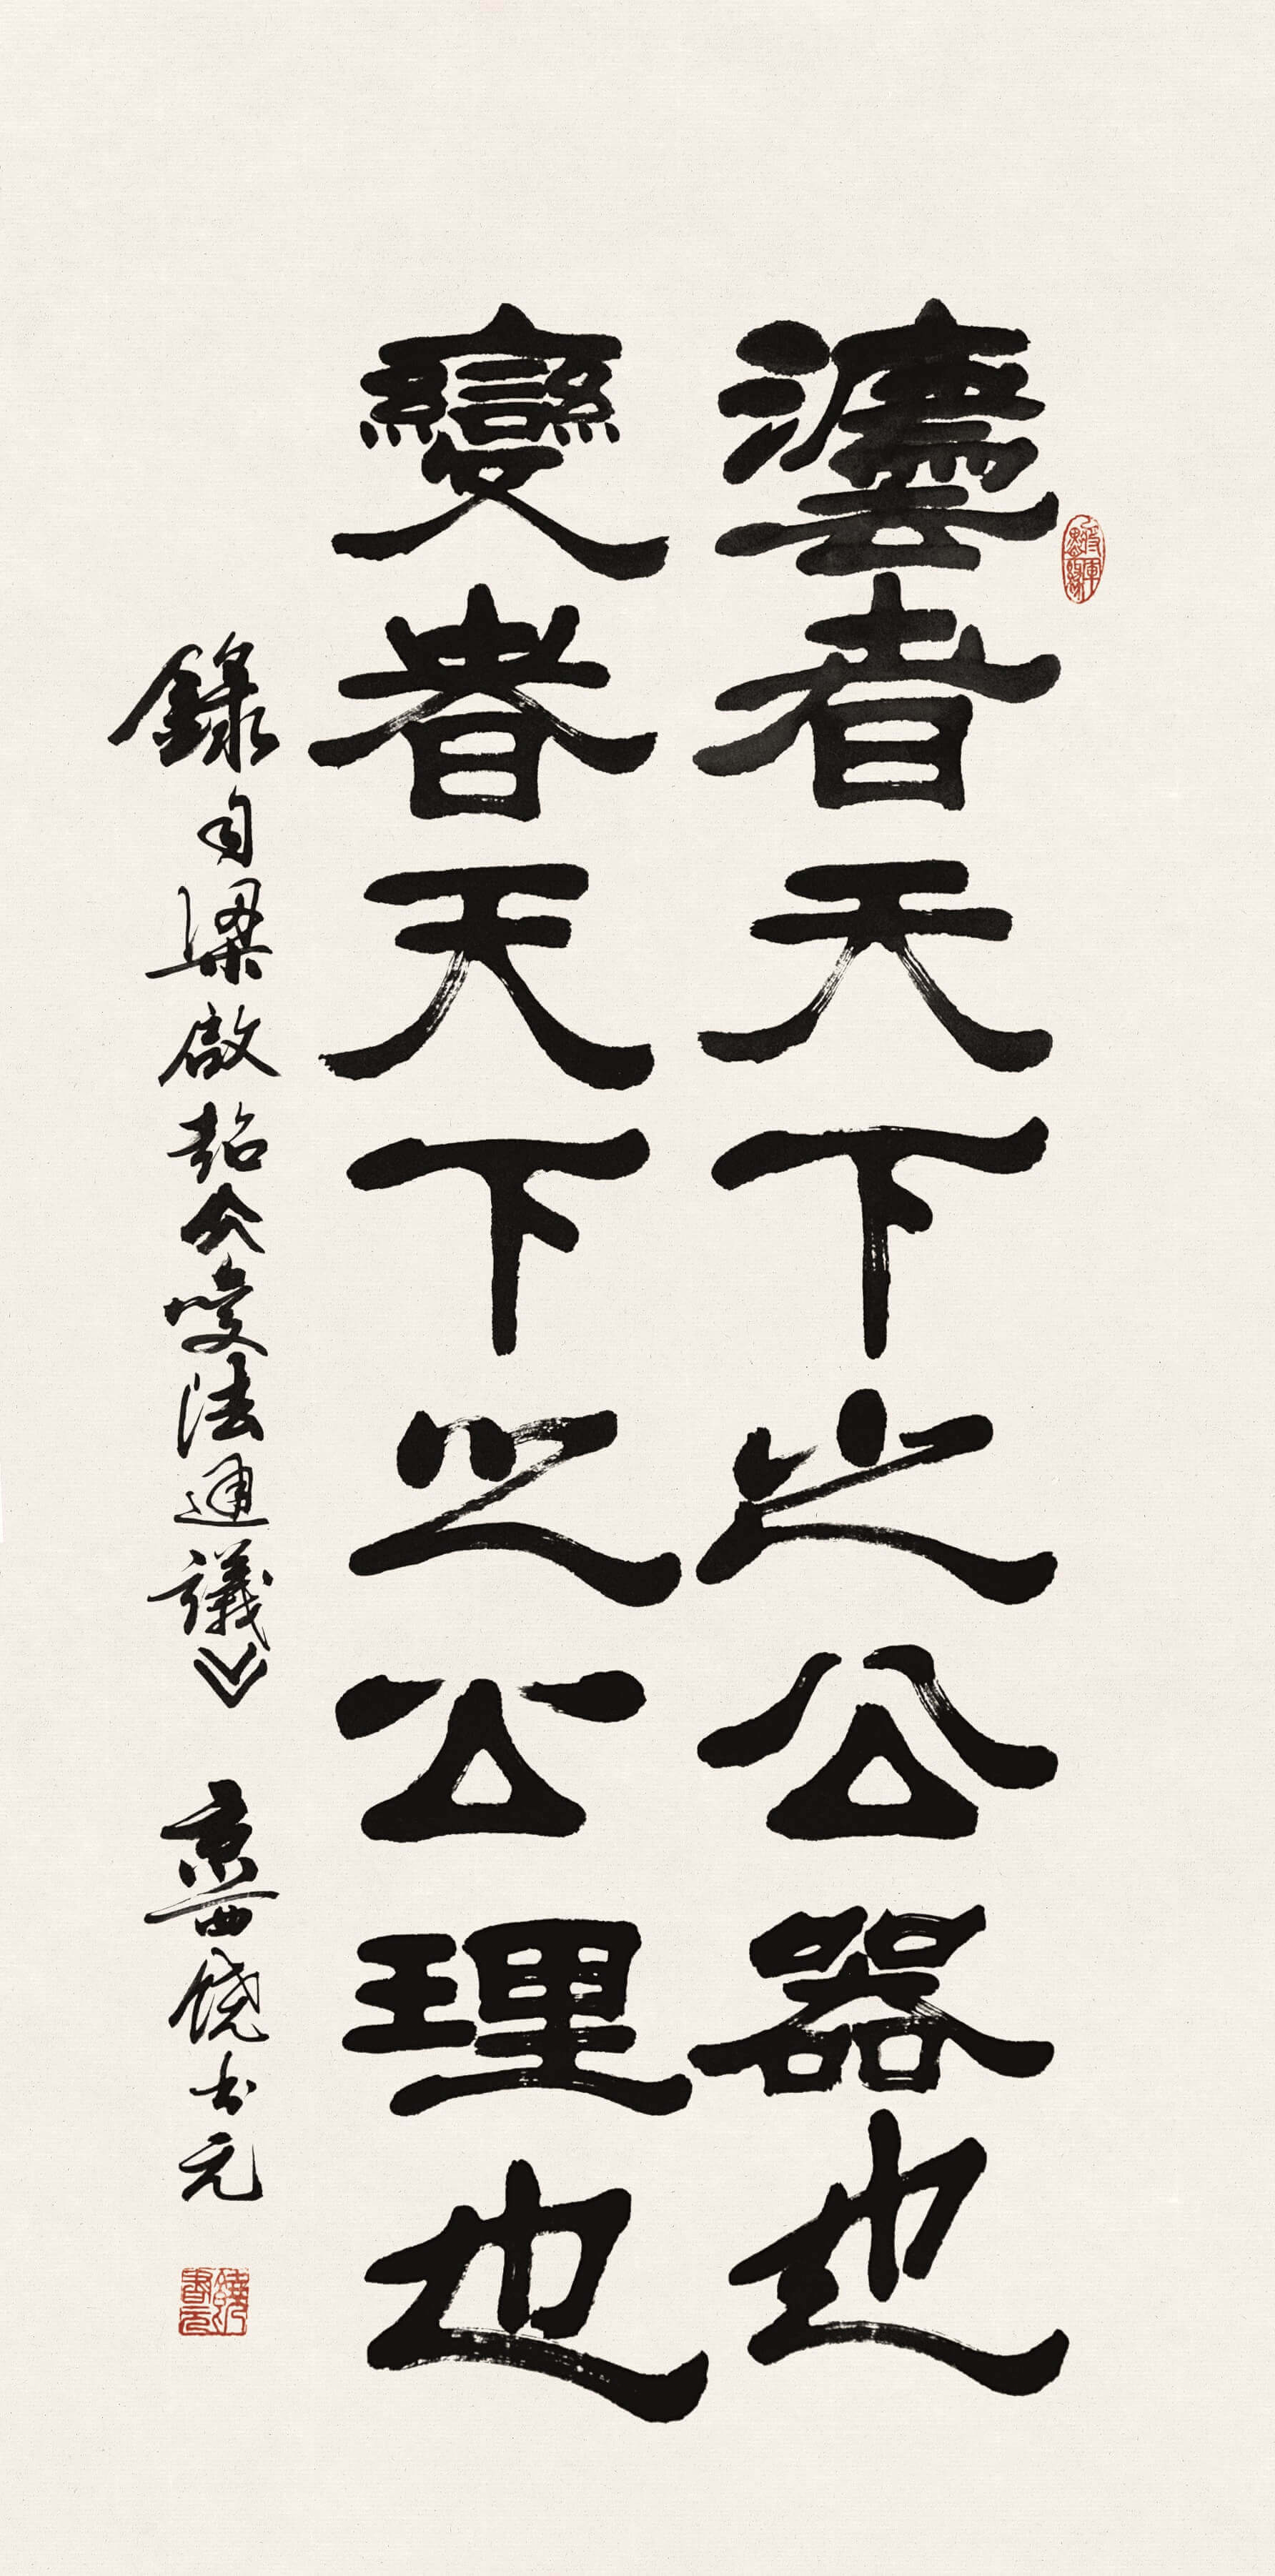 灋者天下之公器也
變者天下之公理也
錄自梁啟超《變法通議》 京西饒書元